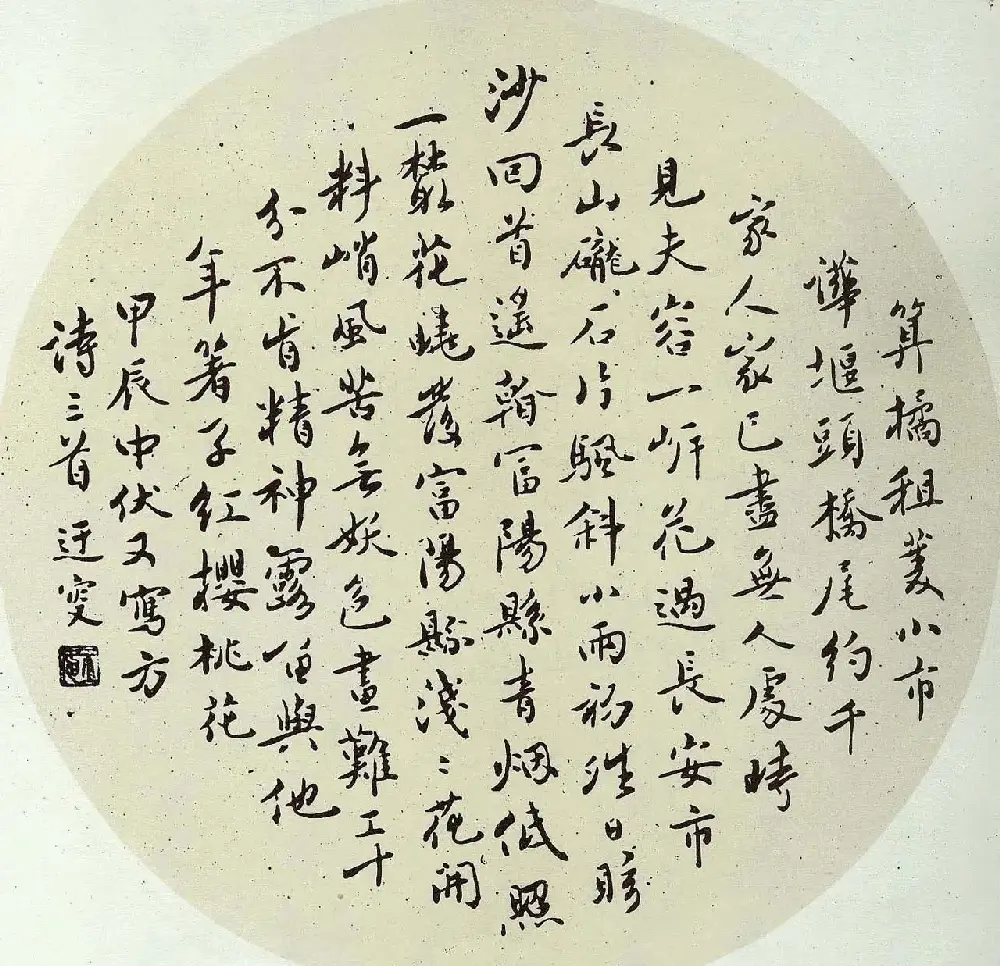 算橘租菱小市
譁堰頭橋尾約千
家人家已盡無人處時
見夫容一岍花過長安市
長山礲石片颿斜小雨初日
沙回首遙富陽縣青烟低照
一叢花曉發富陽縣淺〻花開
料峭風苦無妖色畫難工十
分不肯精神露留與他
年著子紅櫻桃花
甲辰中伏又寫方
詩三首 迂叟